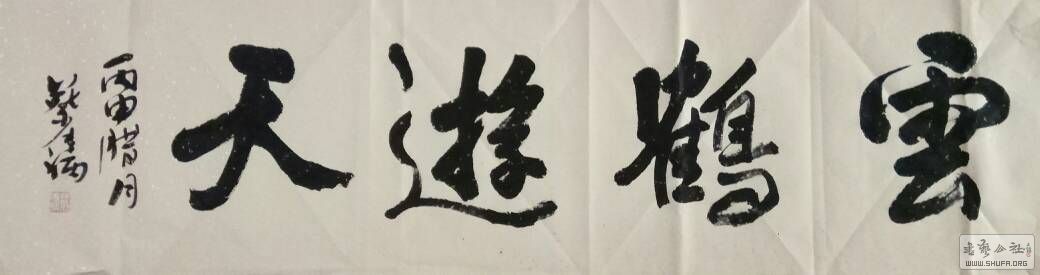 雲鶴遊天
丙申腊月
書藝公社
WWW.SHUFA.ORG